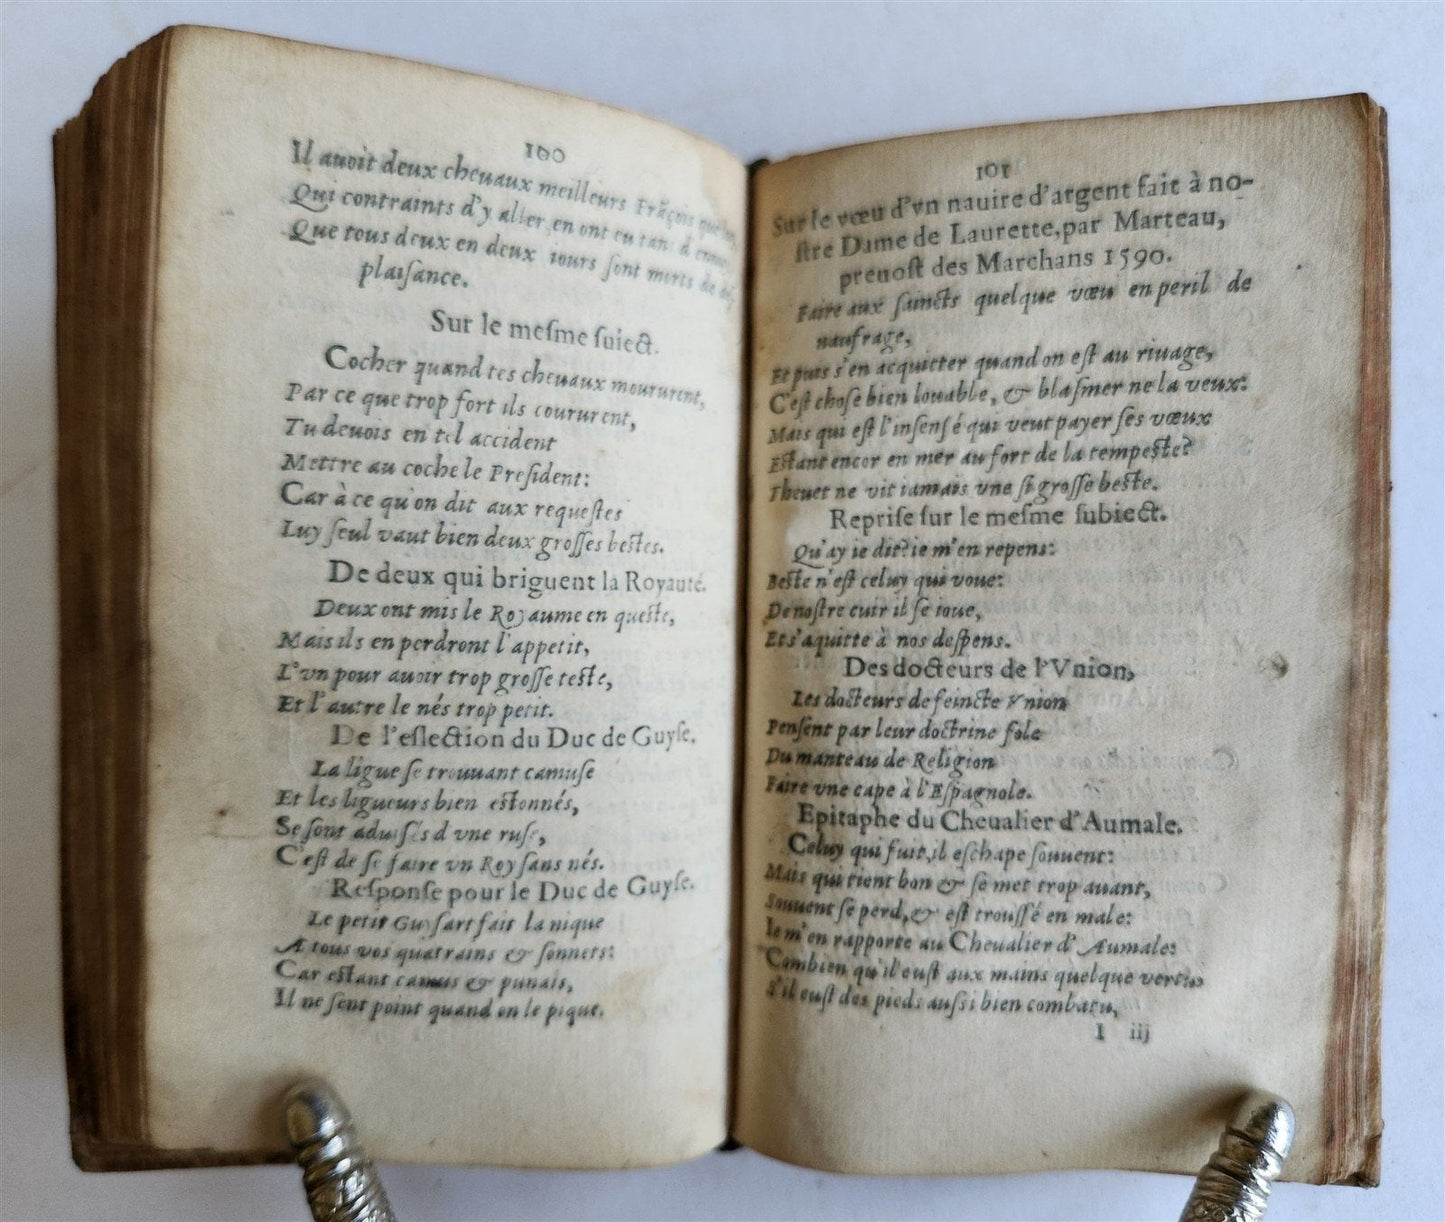 100
Il auoit deux cheuaux meilleurs Frãçois que
Qui contraints d'y aller, en ont eu tant d'ennuy
Que tous deux en deux iours ſont morts de deſ
plaiſance.
Sur le meſme ſuiect.
Cocher quand tes cheuaux moururent,
Par ce que trop fort ils coururent,
Tu deuois en tel accident
Mettre au coche le Preſident:
Car à ce qu'on dit aux requeſtes
Luy ſeul vaut bien deux groſſes beſtes.
De deux qui briguent la Royauté.
Deux ont mis le Royaume en queſte,
Mais ils en perdront l'appetit,
L'vn pour auoir trop groſſe teſte,
Et l'autre le nés trop petit.
De l'eſlection du Duc de Guyſe.
La ligue ſe trouuant camuſe
Et les ligueurs bien eſtonnés,
Se ſont aduiſés d'vne ruſe,
C'eſt de ſe faire vn Roy ſans nés.
Reſponſe pour le Duc de Guyſe.
Le petit Guyſart fait la nique
A tous vos quatrains & ſonnets:
Car eſtant camus & punais,
Il ne ſent point quand on le pique.
101
Sur le vœu d'vn nauire d'argent fait à no-
ſtre Dame de Laurette, par Marteau,
preuoſt des Marchans 1590.
Faire aux ſaincts quelque vœu en peril de
naufrage,
Et puis s'en acquitter quand on eſt au riuage,
C'eſt choſe bien louable, & blaſmer ne la veux:
Mais qui eſt l'inſenſé qui veut payer ſes vœux
Eſtant encor en mer au fort de la tempeſte?
Theuet ne vit iamais vne ſi groſſe beſte.
Repriſe ſur le meſme ſubiect.
Qu'ay ie dit? ie m'en repens:
Beſte n'eſt celuy qui voue:
De noſtre cuir il ſe ioue,
Et s'aquitte à nos deſpens.
Des docteurs de l'Vnion,
Les docteurs de feincte Vnion
Penſent par leur doctrine fole
Du manteau de Religion
Faire vne cape à l'Eſpagnole.
Epitaphe du Cheualier d'Aumale.
Celuy qui fuit, il eſchape ſouuent:
Mais qui tient bon & ſe met trop auant,
Souuent ſe perd, & eſt trouſſé en male:
Ie m'en rapporte au Cheualier d'Aumale:
Combien qu'il euſt aux mains quelque vertu,
S'il euſt des pieds auſsi bien combatu,
I iij